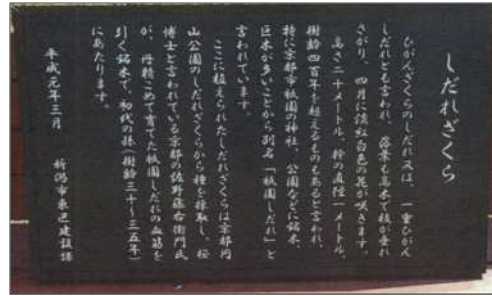 しだれざくら
ひがんざくらのしだれ又は、一重ひがん
しだれとも言われ、落葉する高木で枝が垂れ
さがり、四月に淡紅白色の花が咲きます。
高さ二十メートル、幹の直径一メートル、
樹齢四百年を越えるものもあると言われ、
特に京都市祇園の神社、公園などに銘木、
巨木が多いことから別名「祇園しだれ」と
言われています。
ここに植えられたしだれざくらは京都円
山公園のしだれざくらから種を採取し、桜
博士と言われている京都の佐野藤右衛門氏
が、丹精こめて育てた祇園しだれの血筋を
引く銘木で、初代の孫(樹齢三十〜三五年)
にあたります。
平成元年三月 新潟市東辺建設課